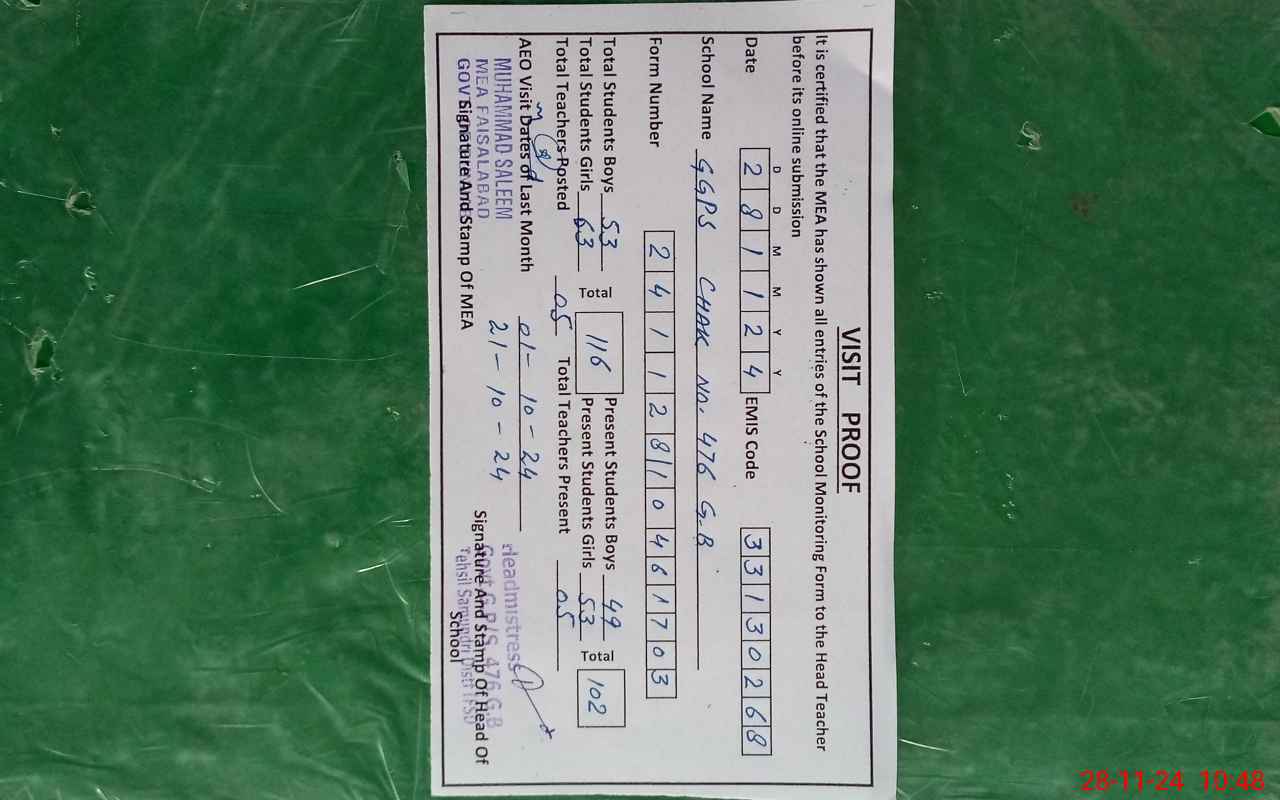 VISIT PROOF
It is certified that the MEA has shown all entries of the School Monitoring Form to the Head Teacher
before its online submission
D D M M Y Y
Date 2 8 1 1 2 4 EMIS Code 3 3 1 3 0 2 6 8
School Name GGPS CHAK NO. 476 G.B
Form Number 2 4 1 1 2 8 1 0 4 6 1 7 0 3
Total Students Boys 53 Present Students Boys 49
Total Students Girls 63 Total 116 Present Students Girls 53 Total 102
Total Teachers Posted 05 Total Teachers Present 05
AEO Visit Dates of Last Month 01-10-24
21-10-24
MUHAMMAD SALEEM
MEA FAISALABAD
Signature And Stamp Of MEA
Headmistress
Govt G.P/S 476 G.B
Tehsil Samundri Distt FSD
Signature And Stamp Of Head Of
School
28-11-24 10:48